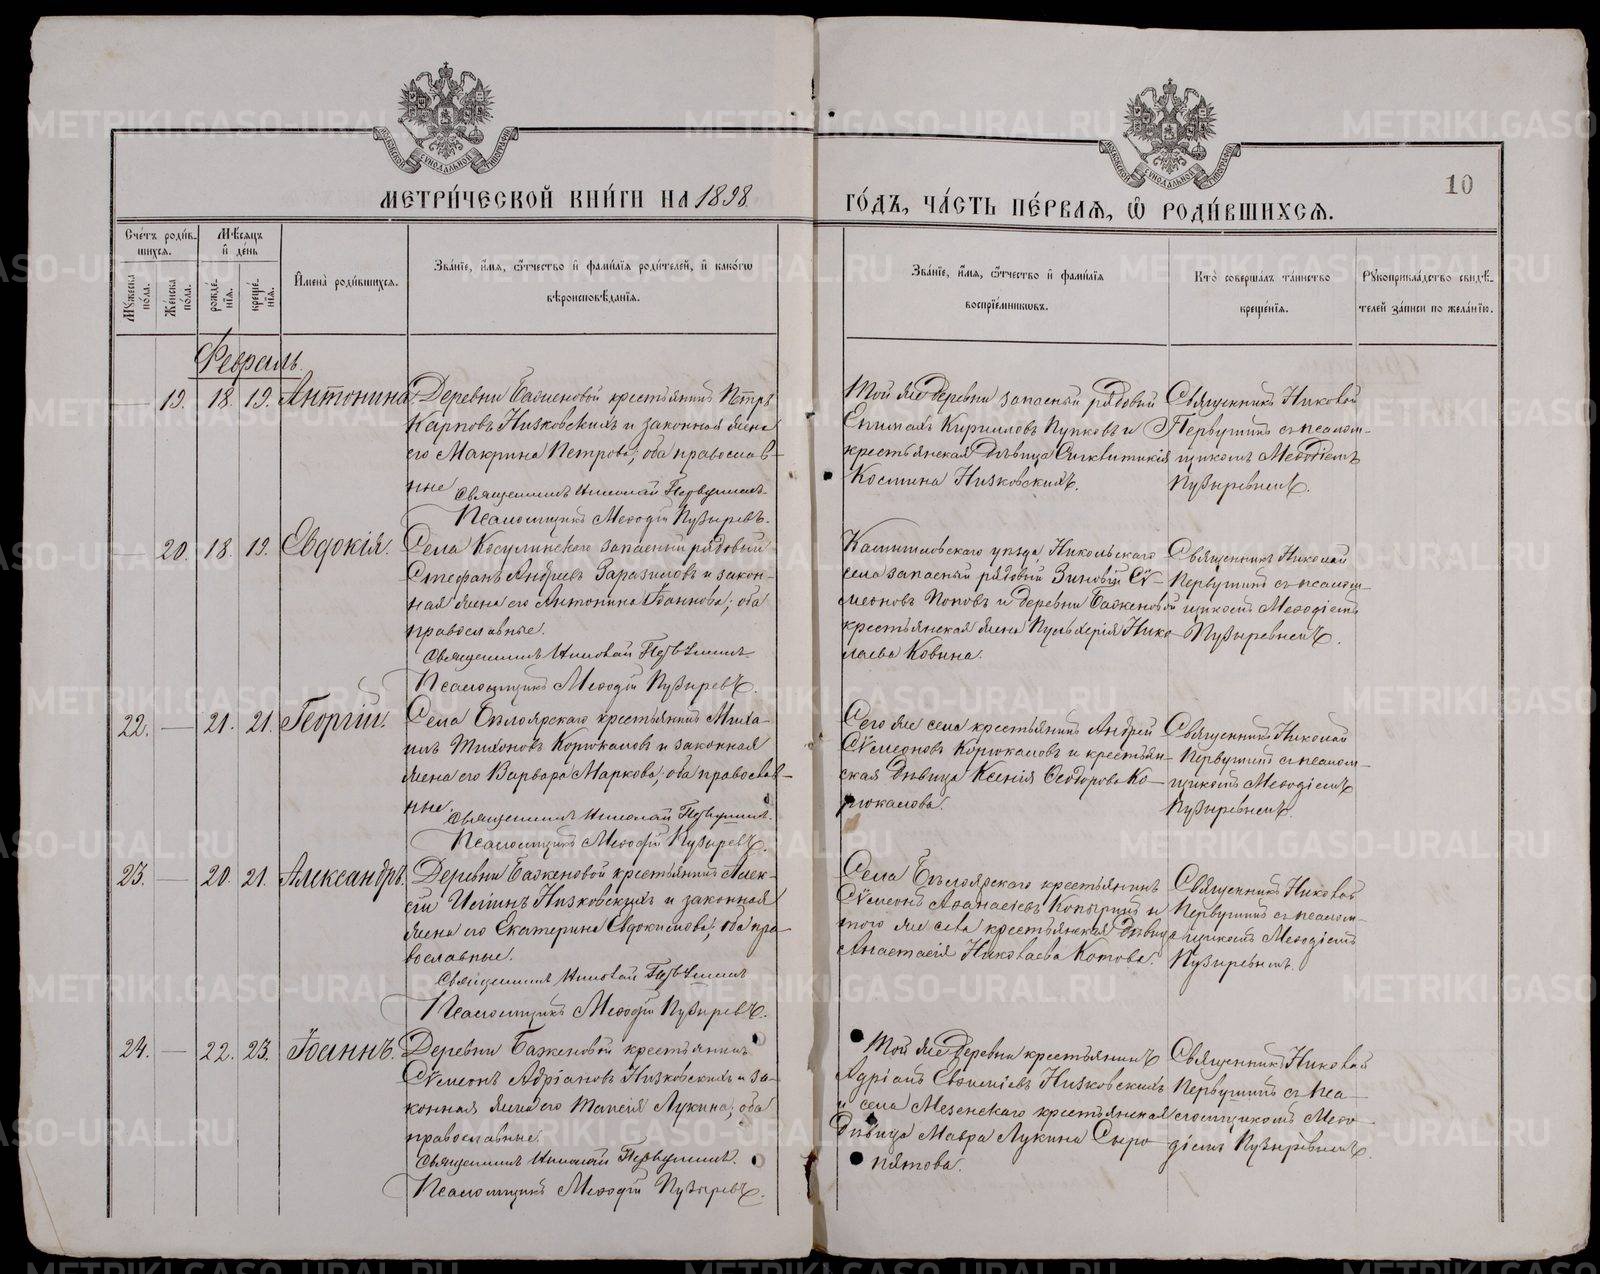 МЕТРИ́ЧЕСКОЙ КНИ́ГИ НА 1898
ГО́ДЪ, ЧА́СТЬ ПЕ́РВАЯ, Ѡ҆ РОДИ́ВШИХСЯ.
10
Сче́тъ роди́в-
шихся.
Мѣ́сяцъ
и҆ де́нь
Му́жеска
по́ла.
Же́нска
по́ла.
рожде́-
нія.
креще́-
нія.
И҆мена̀ роди́вшихся.
Зва́ніе, и҆́мя, ѻ҆́тчество и҆ фами́лія роди́телей, и҆ како́гѡ
вѣроисповѣ́данія.
Зва́ніе, и҆́мя, ѻ҆́тчество и҆ фами́лія
воспріе́мникѡвъ.
Кто̀ соверша́лъ та́инство
креще́нія.
Рꙋкоприкла́дство свидѣ́-
телей за́писи по жела́нію.
Февраль.
— 19. 18. 19. Антонина
Деревни Баженовой крестьянинъ Петръ
Карповъ Низковскихъ и законная жена
его Макрина Петрова; оба православ-
ные
Священникъ Николай Первушинъ.
Псаломщикъ Меѳодій Пузыревъ.
Той же деревни запасный рядовой
Кирилловъ Пупковъ и
крестьянская дѣвица Синклитикія
Космина Низковскихъ.
Священникъ Николай
Первушинъ съ псалом-
щикомъ Меѳодіемъ
Пузыревымъ.
— 20. 18. 19. Евдокія.
Села Косулинскаго запасный рядовой
Стефанъ Андреевъ Заразиловъ и закон-
ная жена его Антонина Іоаннова; оба
православные.
Священникъ Николай Первушинъ.
Псаломщикъ Меѳодій Пузыревъ.
Камышловскаго уѣзда Никольскаго
села запасный рядовой Зиновій Сѵ-
меоновъ Поповъ и деревни Баженовой
крестьянская жена Пульхерія Нико-
лаева Ковина.
Священникъ Николай
Первушинъ съ псалом-
щикомъ Меѳодіемъ
Пузыревымъ.
22. — 21. 21. Георгій.
Села Бѣлоярскаго крестьянинъ Миха-
илъ Тихоновъ Корюкаловъ и законная
жена его Варвара Маркова; оба православ-
ные.
Священникъ Николай Первушинъ.
Псаломщикъ Меѳодій Пузыревъ.
Сего же села крестьянинъ Андрей
Сѵмеоновъ Корюкаловъ и крестьян-
ская дѣвица Ксенія Ѳеодорова Ко-
рюкалова.
Священникъ Николай
Первушинъ съ псалом-
щикомъ Меѳодіемъ
Пузыревымъ.
23. — 20. 21. Александръ.
Деревни Баженовой крестьянинъ Алек-
сій Исіинъ Низковскихъ и законная
жена его Екатерина Евдокимова; оба пра-
вославные.
Священникъ Николай Первушинъ
Псаломщикъ Меѳодій Пузыревъ.
Села Бѣлоярскаго крестьянинъ
Сѵмеонъ Аѳанасіевъ Копыринъ и
того же села крестьянская дѣвица
Анастасія Николаева Котова.
Священникъ Николай
Первушинъ съ псалом-
щикомъ Меѳодіемъ
Пузыревымъ.
24. — 22. 23. Іоаннъ.
Деревни Баженовой крестьянинъ
Сѵмеонъ Адріановъ Низковскихъ и за-
конная жена его Таисія Лукина; оба
православные.
Священникъ Николай Первушинъ.
Псаломщикъ Меѳодій Пузыревъ.
Той же деревни крестьянинъ
Адріанъ Низковскихъ
и села Мезенскаго крестьянская
дѣвица Мавра Лукина Сыро-
пятова.
Священникъ Николай
Первушинъ съ пса-
ломщикомъ Меѳо-
діемъ Пузыревымъ.
METRIKI.GASO-URAL.RU